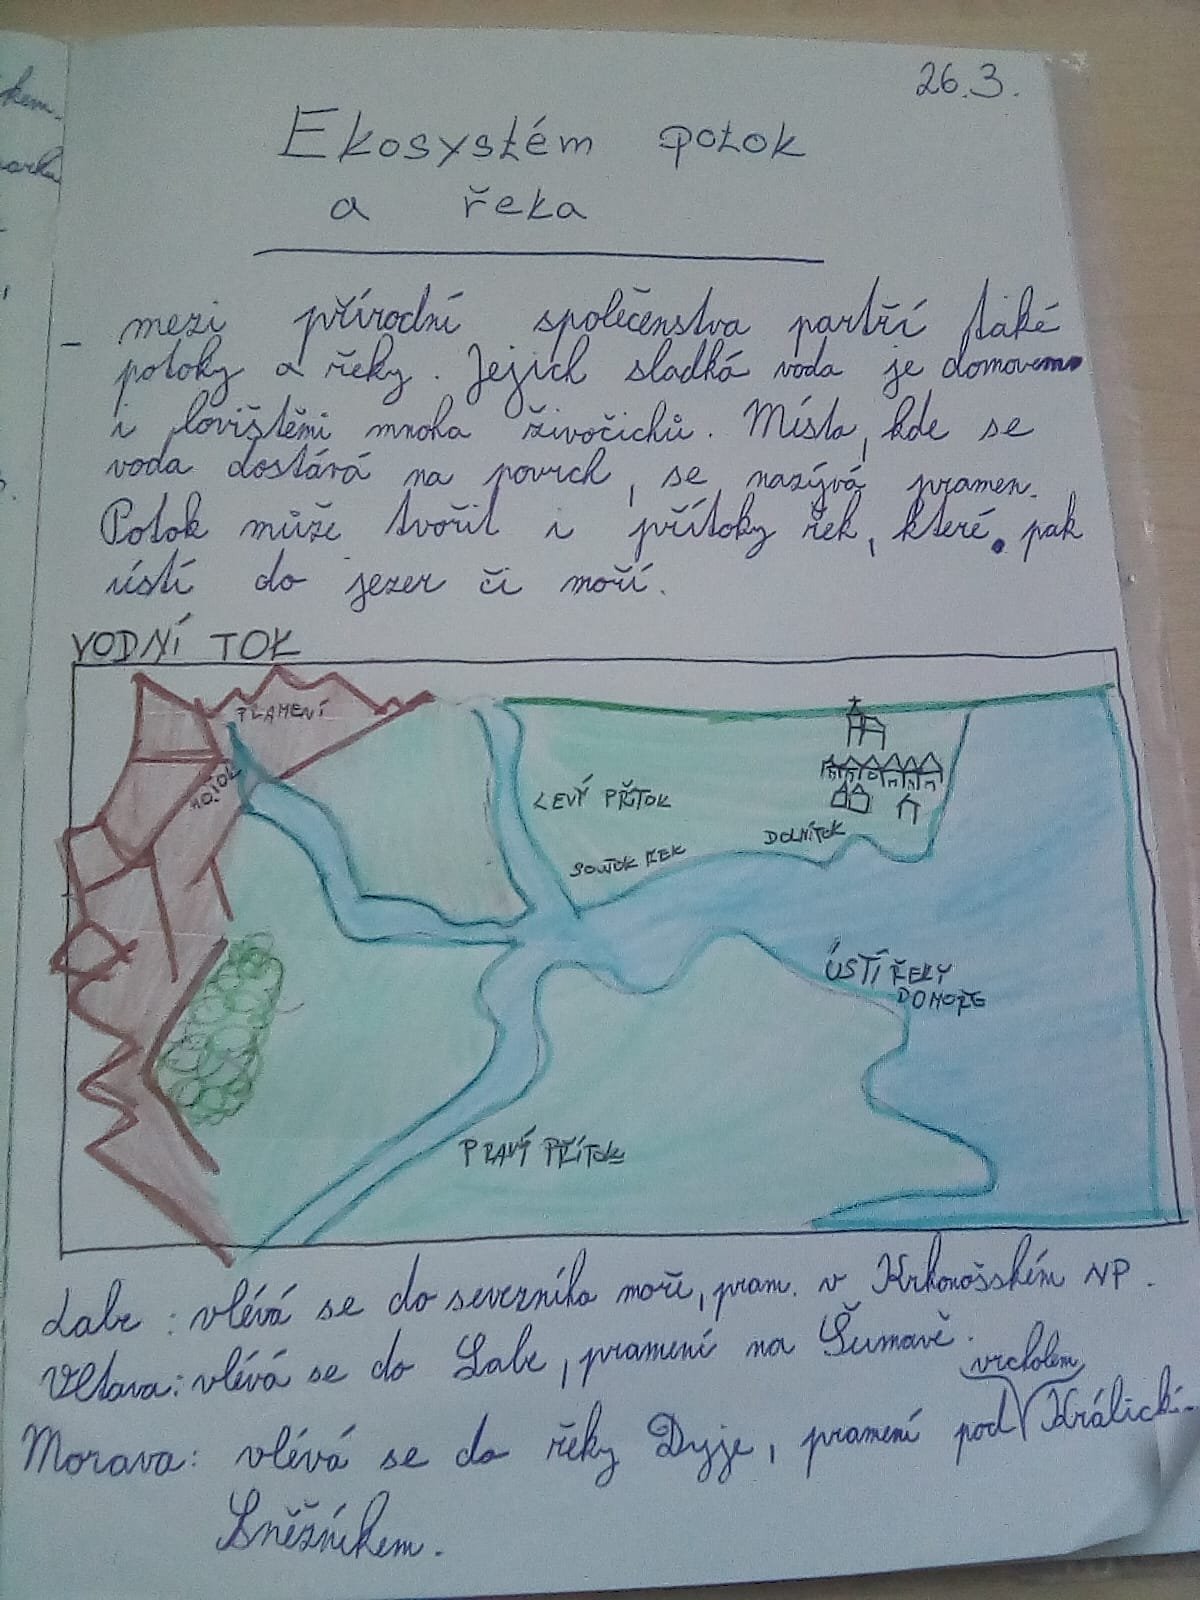 kem.
26.3.
Ekosystém potok
a řeka
- mezi přírodní společenstva partří také
potoky a řeky. Jejich sladká voda je domovem
i lovištěmi mnoha živočichů. Místa, kde se
voda dostává na povrch, se nazývá pramen.
Potok může tvořit i přítoky řek, které pak
ústí do jezer či moří.
VODNÍ TOK
PLAMENÍ
LEVÝ PŘÍTOK
DOLNÍTOK
SOUTOK ŘEK
ÚSTÍ ŘEKY
DOMOŘE
PRAVÝ PŘÍTOK
Labe: vlévá se do severního moře, pram. v Krkonošském NP.
Vltava: vlévá se do Labe, pramení na Šumavě.
vrcholem
Morava: vlévá se do řeky Dyje, pramení pod Králický-
Sněžníkem.